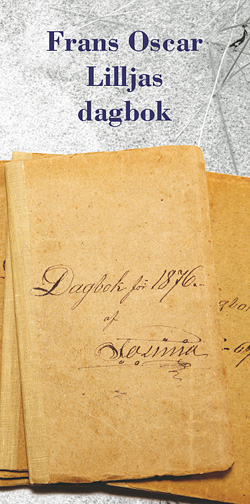 Frans Oscar
Lilljas
dagbok
Dagbok för 1876.
af